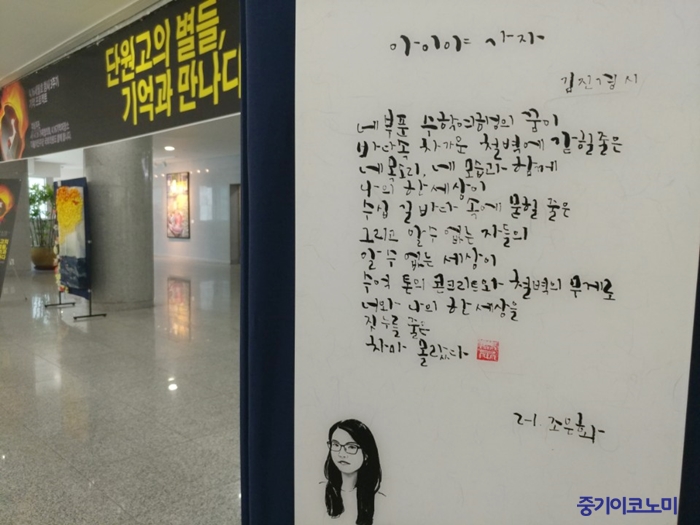 단원고의 별들,
기억과 만나다
아이야 가자
김진경 시
네 부푼 수학여행의 꿈이
바다속 차가운 철벽에 갇힐 줄은
네 목소리, 네 모습과 함께
나의 한 세상이
수십 길 바다 속에 묻힐 줄은
그리고 알 수 없는 자들의
알 수 없는 세상이
수억 톤의 콘크리트와 철벽의 무게로
너와 나의 한 세상을
짓누를 줄은
차마 몰랐다
2-1. 조우화
중기이코노미